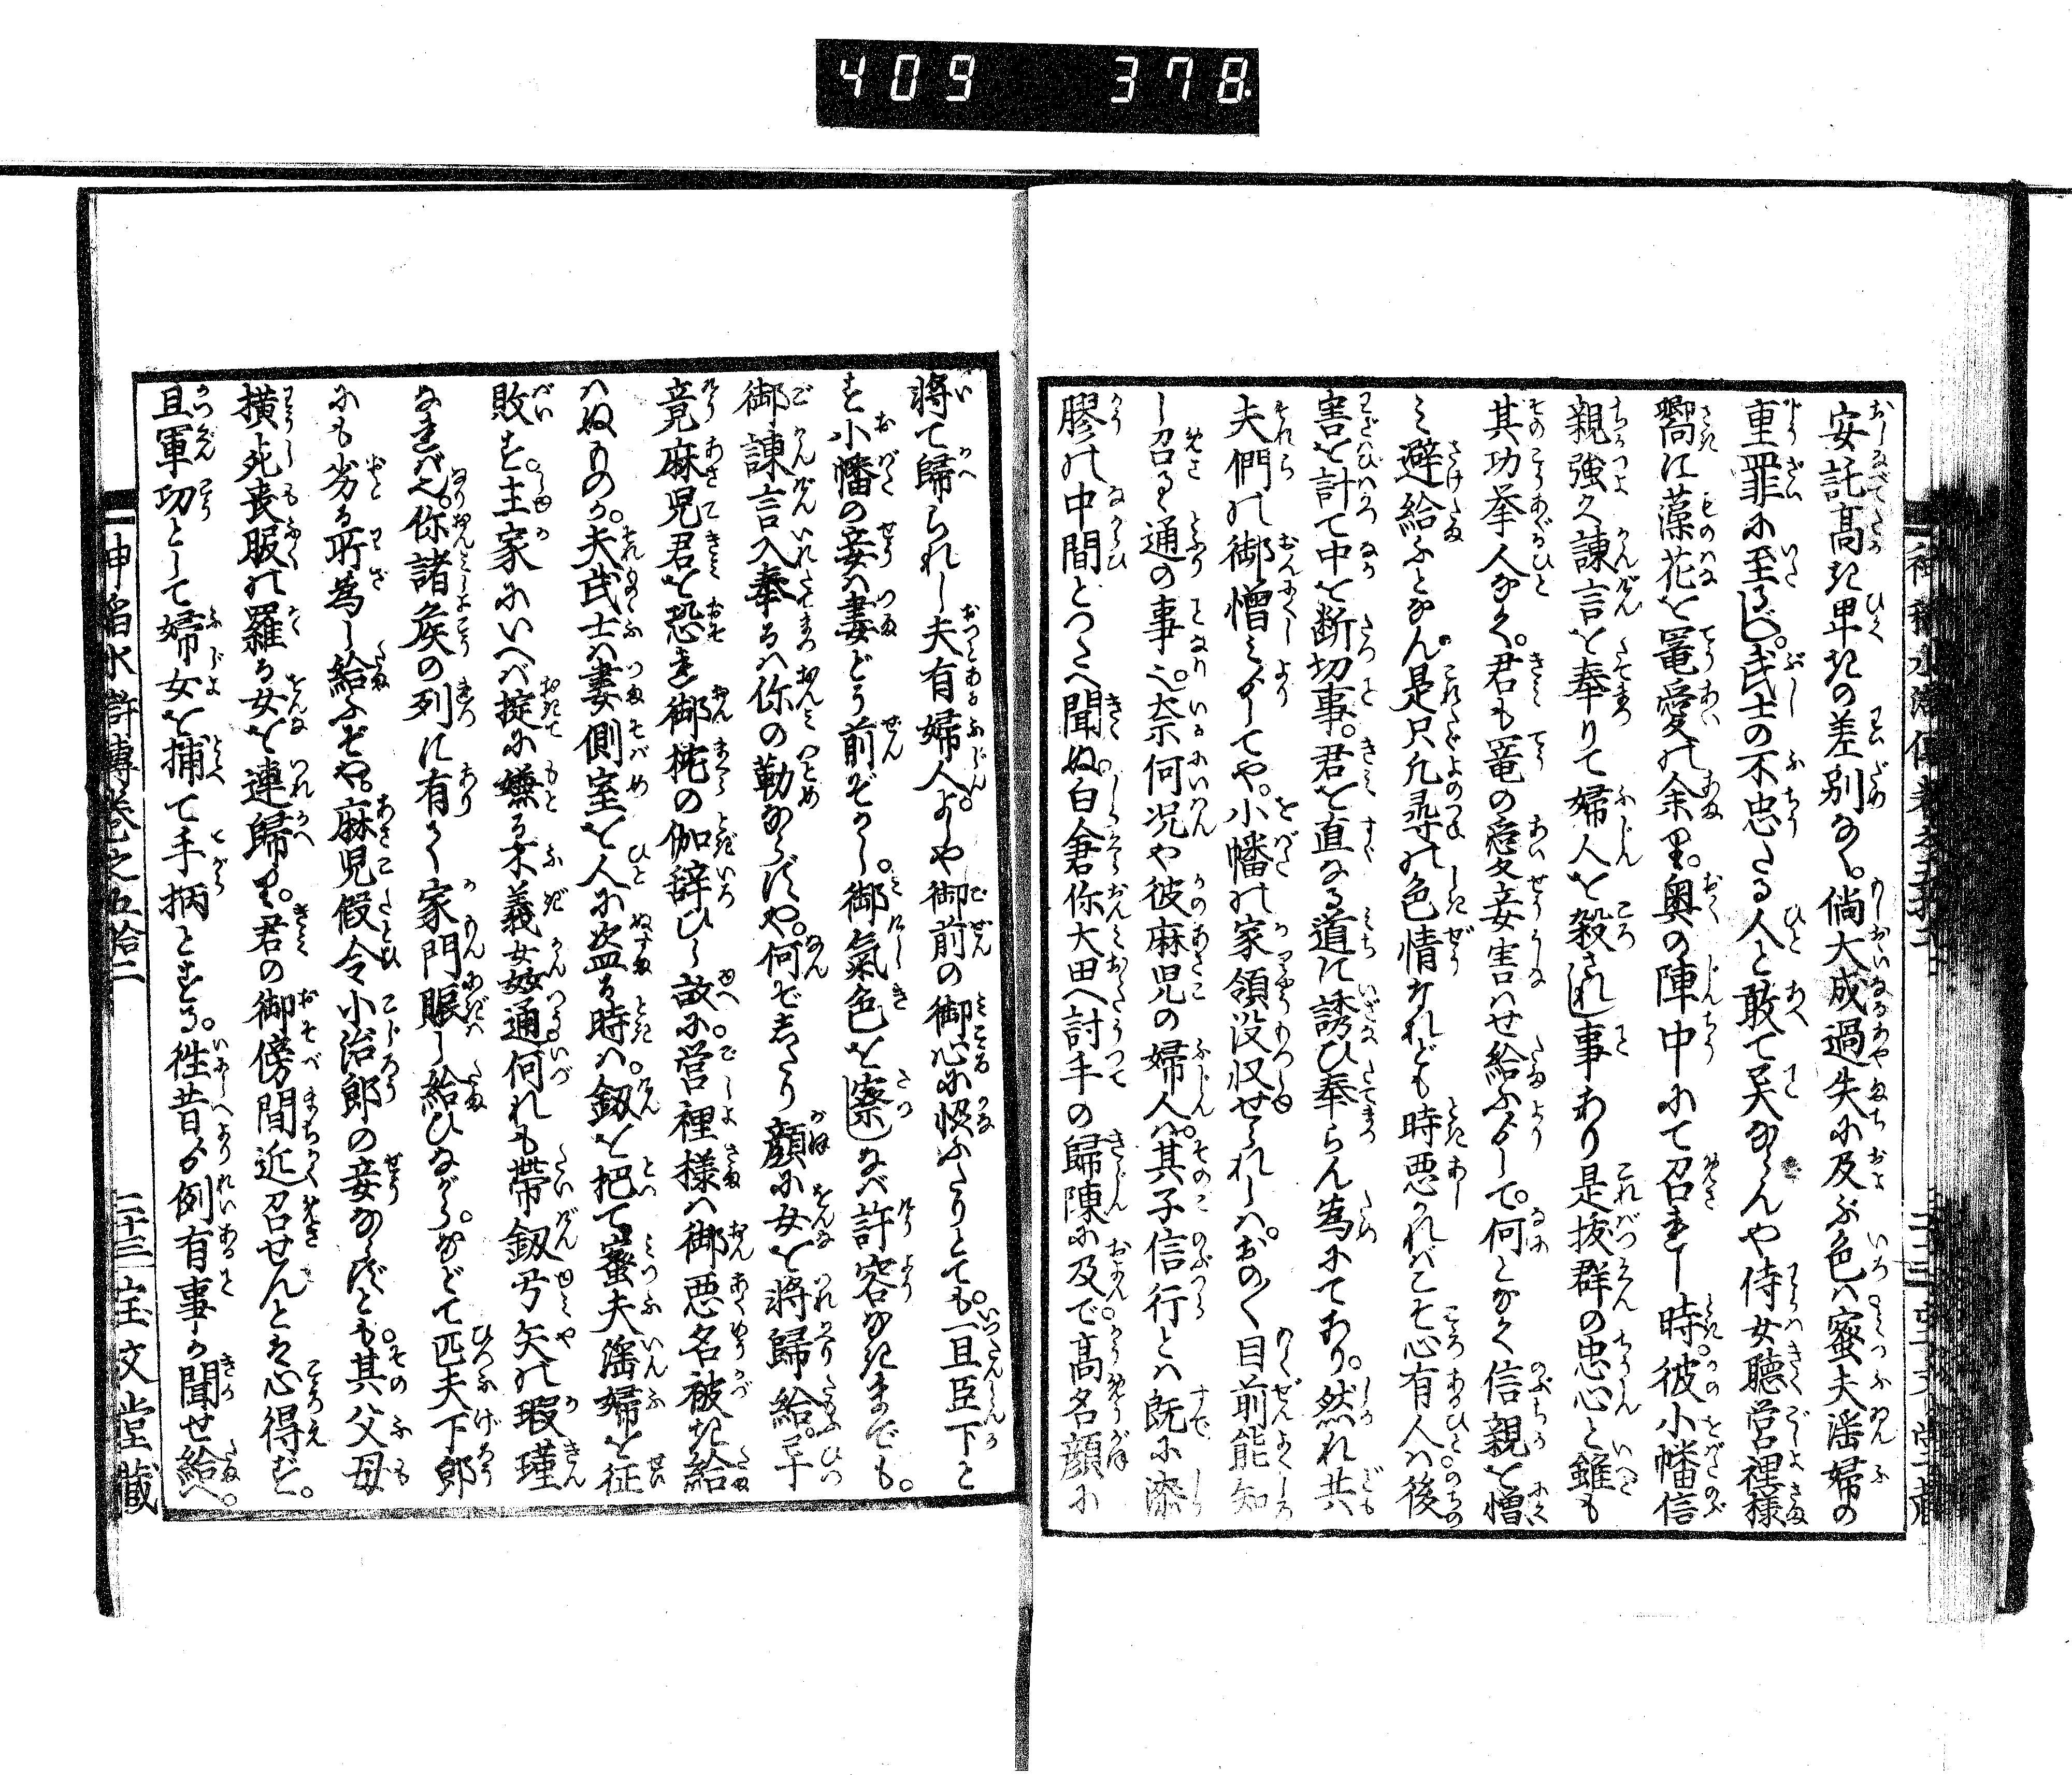 409 378
安託高き卑きの差別なく。倘大成過失に及ぶ色は蜜夫淫婦の
重罪に至るべし。武士の不忠たる人と敢て笑ならんや侍女聴営裡様
嚮に藻花を寵愛の余り。奥の陣中にて召きし時。彼小幡信
親強く諫言を奉りて婦人を殺されし事あり是抜群の忠心と雖も
其功挙人なく。君も寵の愛妾害はせ給ふよりして。何となく信親を憎
み避給ふとなん。是只凡尋の色情なれども時悪かればこそ心有人は後
害を計て中を断切事。君を直なる道に誘ひ奉らん為にてあり。然れ共
夫們の御憎みよりしてや。小幡の家領没収せられしは。おの〱目前能知
し召るゝ通の事也。奈何況や彼麻児の婦人は。其子信行とは既に漆
膠の中間とつたへ聞ぬ白倉你大田へ討手の帰陳に及で。高名顔に
将て帰られし夫有婦人。よや御前の御心に愜ふたりとても。一旦臣下と
す小幡の妾は妻どう前ぞかし。御気色を察しなば許容なきまでも。
御諫言入奉るは你の勤ならずや。何ぞ志たり顔に女を将帰給ふ。畢
竟麻児君を恐れ御枕の伽辞ひし故に営裡様は御悪名被き給
はぬものか。夫武士は妻側室を人に盗る時は。釼を把て蜜夫淫婦を征
敗す。主家にいへば掟に嫌る不義女姦通何れも帯釼弓矢の瑕瑾
なればへ。你諸矦の列に有りく家門賑し給ひながら。などて匹夫下郎
にも劣る所為し給ふぞや。麻児仮令小治郎の妾ならずとも。其父母
横死喪服の羅る女を連帰り。君の御傍間近召せんとは心得ず。
且軍功として婦女を捕て手柄とする。徃昔より例有事か聞せ給へ。
神稲水滸傳巻之五拾二
二十三
宝文堂蔵